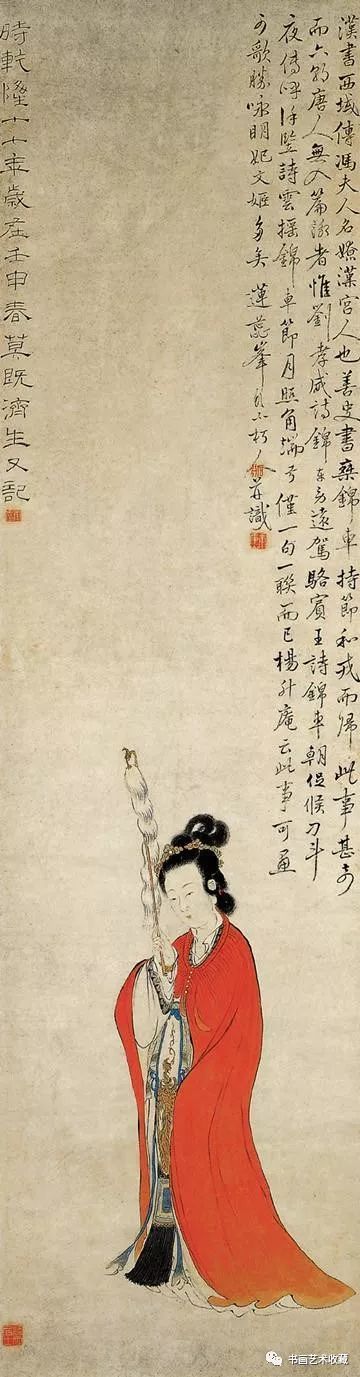 漢書西域傳馮夫人名嫽漢宮人也善史書乘錦車持節和戎而歸此事甚奇
而六朝唐人無入篇詠者惟劉孝威詩錦車方遠駕駱賓王詩錦車朝促候刁斗
夜傳呼徐堅詩雲搖錦車節月照角端弓僅一句一聯而已楊升庵云此事可畫
可歌勝詠明妃文姬多矣 蓮蕊峯頭不朽人并識
時乾隆十七年歲在壬申春莫既濟生又記
书画艺术收藏